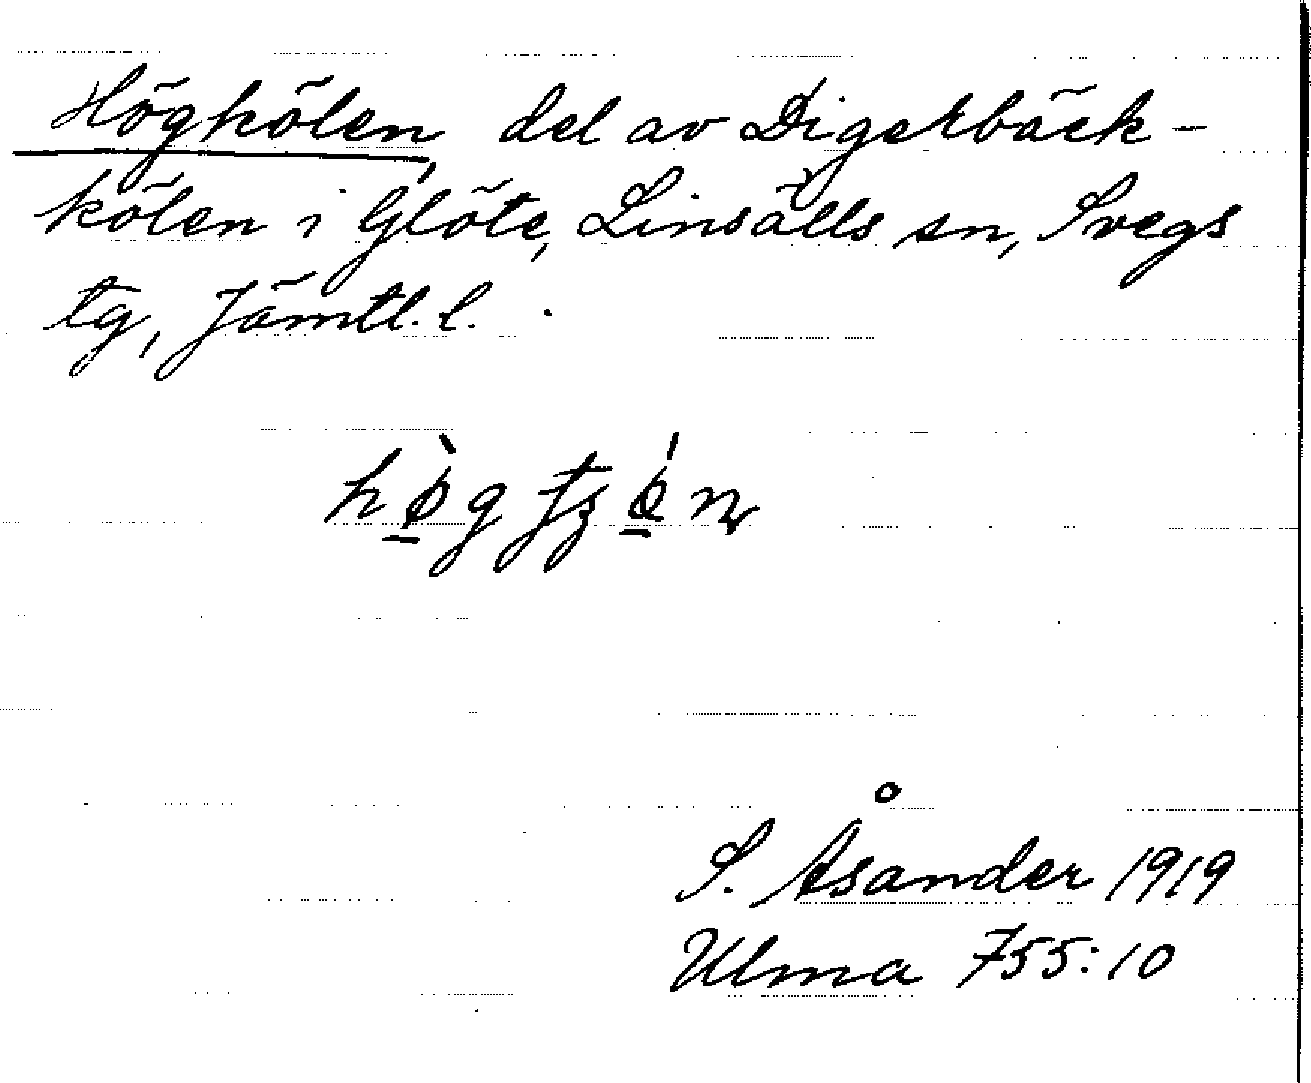 Högkölen, del av Digerbäck-
kölen i Glöte, Linsälls sn, Svegs
tg, Jämtl. l.
hø̀g tʒǿn
S. Åsander 1919
Ulma 755:10